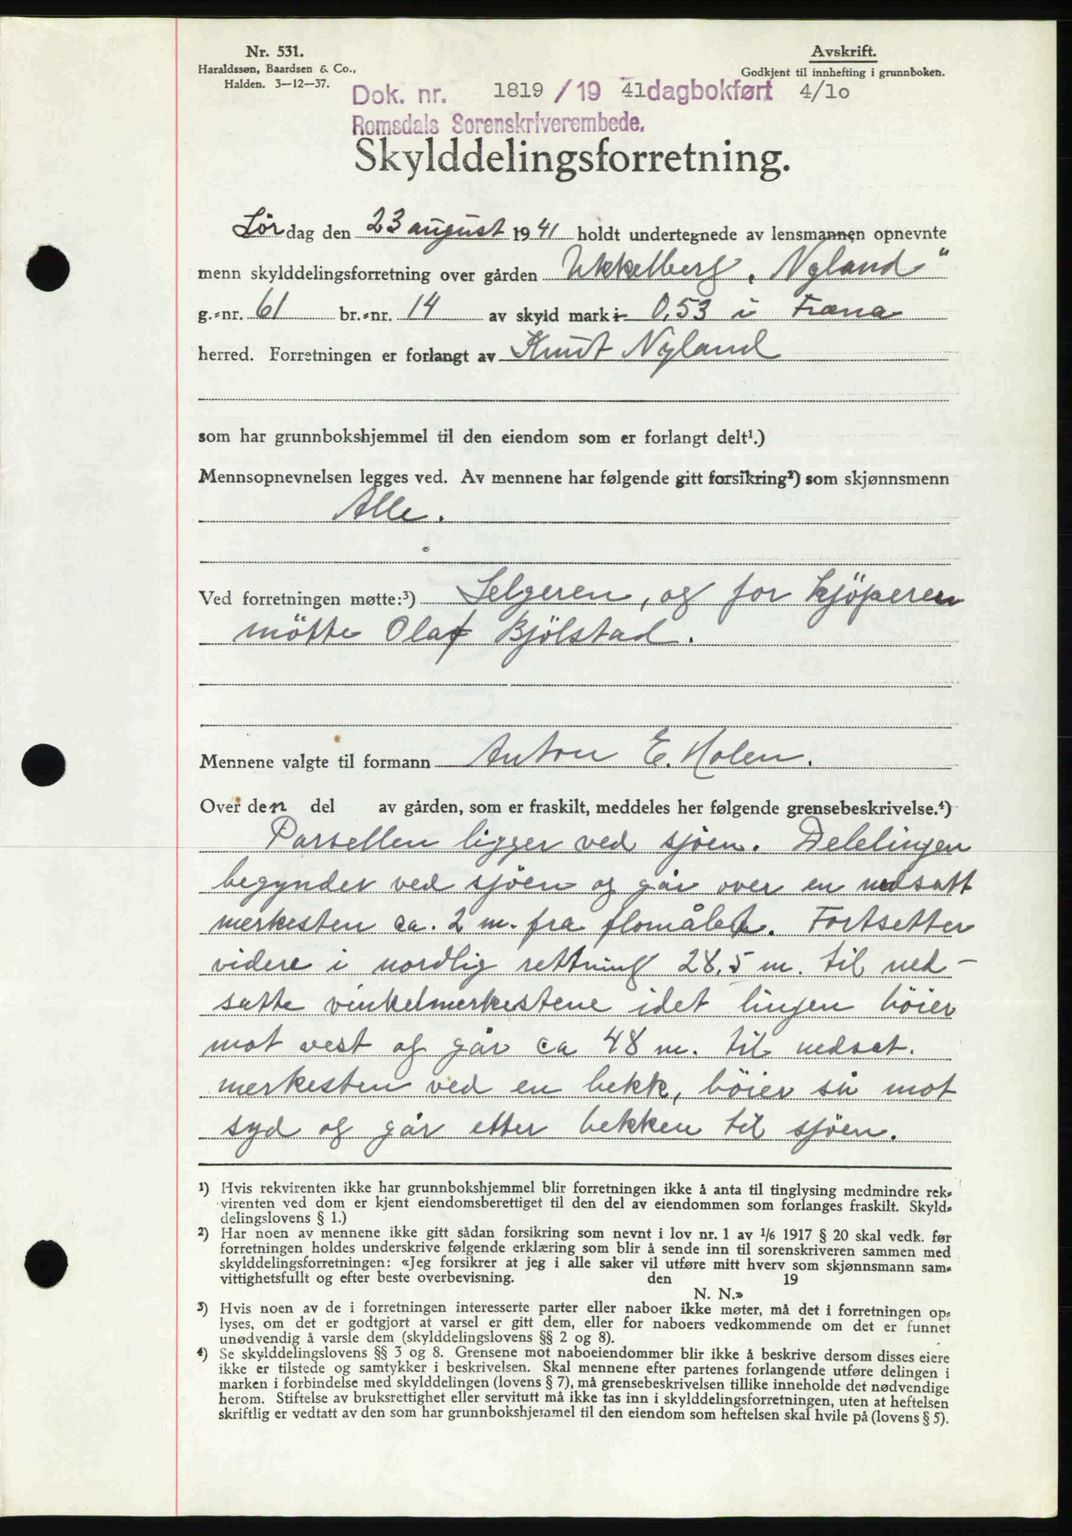 Nr. 531.
Haraldssøn, Baardsen & Co.,
Halden. 3—12—37.
Avskrift.
Godkjent til innhefting i grunnboken.
Dok. nr. 1819 / 19 41 dagbokført 4/10
Romsdals Sorenskriverembede.
Skylddelingsforretning.
Lør dag den 23 august 1941 holdt undertegnede av lensmannen opnevnte
menn skylddelingsforretning over gården Ukkelberg, Nyland"
g.-nr. 61 br.-nr. 14 av skyld mark 0,53 i Fræna
herred. Forretningen er forlangt av Knut Nyland
som har grunnbokshjemmel til den eiendom som er forlangt delt¹.)
Mennsopnevnelsen legges ved. Av mennene har følgende gitt forsikring²) som skjønnsmenn
Alle.
Ved forretningen møtte:³) Selgeren, og for kjöperen
mötte Olaf Bjölstad.
Mennene valgte til formann Anton E. Holen.
Over den del av gården, som er fraskilt, meddeles her følgende grensebeskrivelse.⁴)
Parsellen ligger ved sjöen. Delelinjen
begynder ved sjöen og går over en nedsatt
merkesten ca. 2 m. fra flomålet. Fortsetter
videre i nordlig rettning 28,5 m. til ned-
satte vinkelmerkestene idet linjen böier
mot vest og går ca 48 m. til nedsat.
merkesten ved en bekk, böier så mot
syd og går etter bekken til sjöen.
¹) Hvis rekvirenten ikke har grunnbokshjemmel blir forretningen ikke å anta til tinglysing medmindre rek-
virenten ved dom er kjent eiendomsberettiget til den del av eiendommen som forlanges fraskilt. Skyld-
delingslovens § 1.)
²) Har noen av mennene ikke gitt sådan forsikring som nevnt i lov nr. 1 av 1/6 1917 § 20 skal vedk. før
forretningen holdes underskrive følgende erklæring som blir å sende inn til sorenskriveren sammen med
skylddelingsforretningen: «Jeg forsikrer at jeg i alle saker vil utføre mitt hverv som skjønnsmann sam-
vittighetsfullt og efter beste overbevisning. den 19
N. N.»
³) Hvis noen av de i forretningen interesserte parter eller naboer ikke møter, må det i forretningen op-
lyses, om det er godtgjort at varsel er gitt dem, eller for naboers vedkommende om det er funnet
unødvendig å varsle dem (skylddelingslovens §§ 2 og 8).
⁴) Se skylddelingslovens §§ 3 og 8. Grensene mot naboeiendommer blir ikke å beskrive dersom disses eiere
ikke er tilstede og samtykker i beskrivelsen. Skal mennene efter partenes forlangende utføre delingen i
marken i forbindelse med skylddelingen (lovens § 7), må grensebeskrivelsen tillike inneholde det nødvendige
herom. Stiftelse av bruksrettighet eller servitutt må ikke tas inn i skylddelingsforretningen, uten at heftelsen
skriftlig er vedtatt av den som har grunnbokshjemmel til den eiendom som heftelsen skal hvile på (lovens § 5).